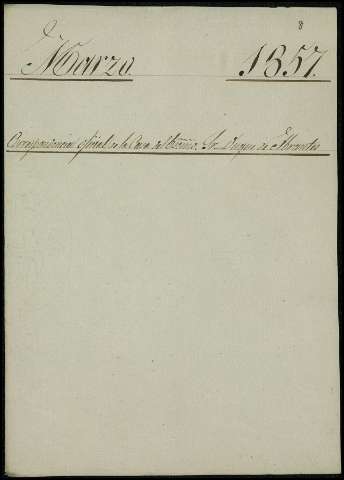 8
Marzo. 1857.
Correspondencia oficial de la Casa del Excmo. Sr. Duque de Abrantes